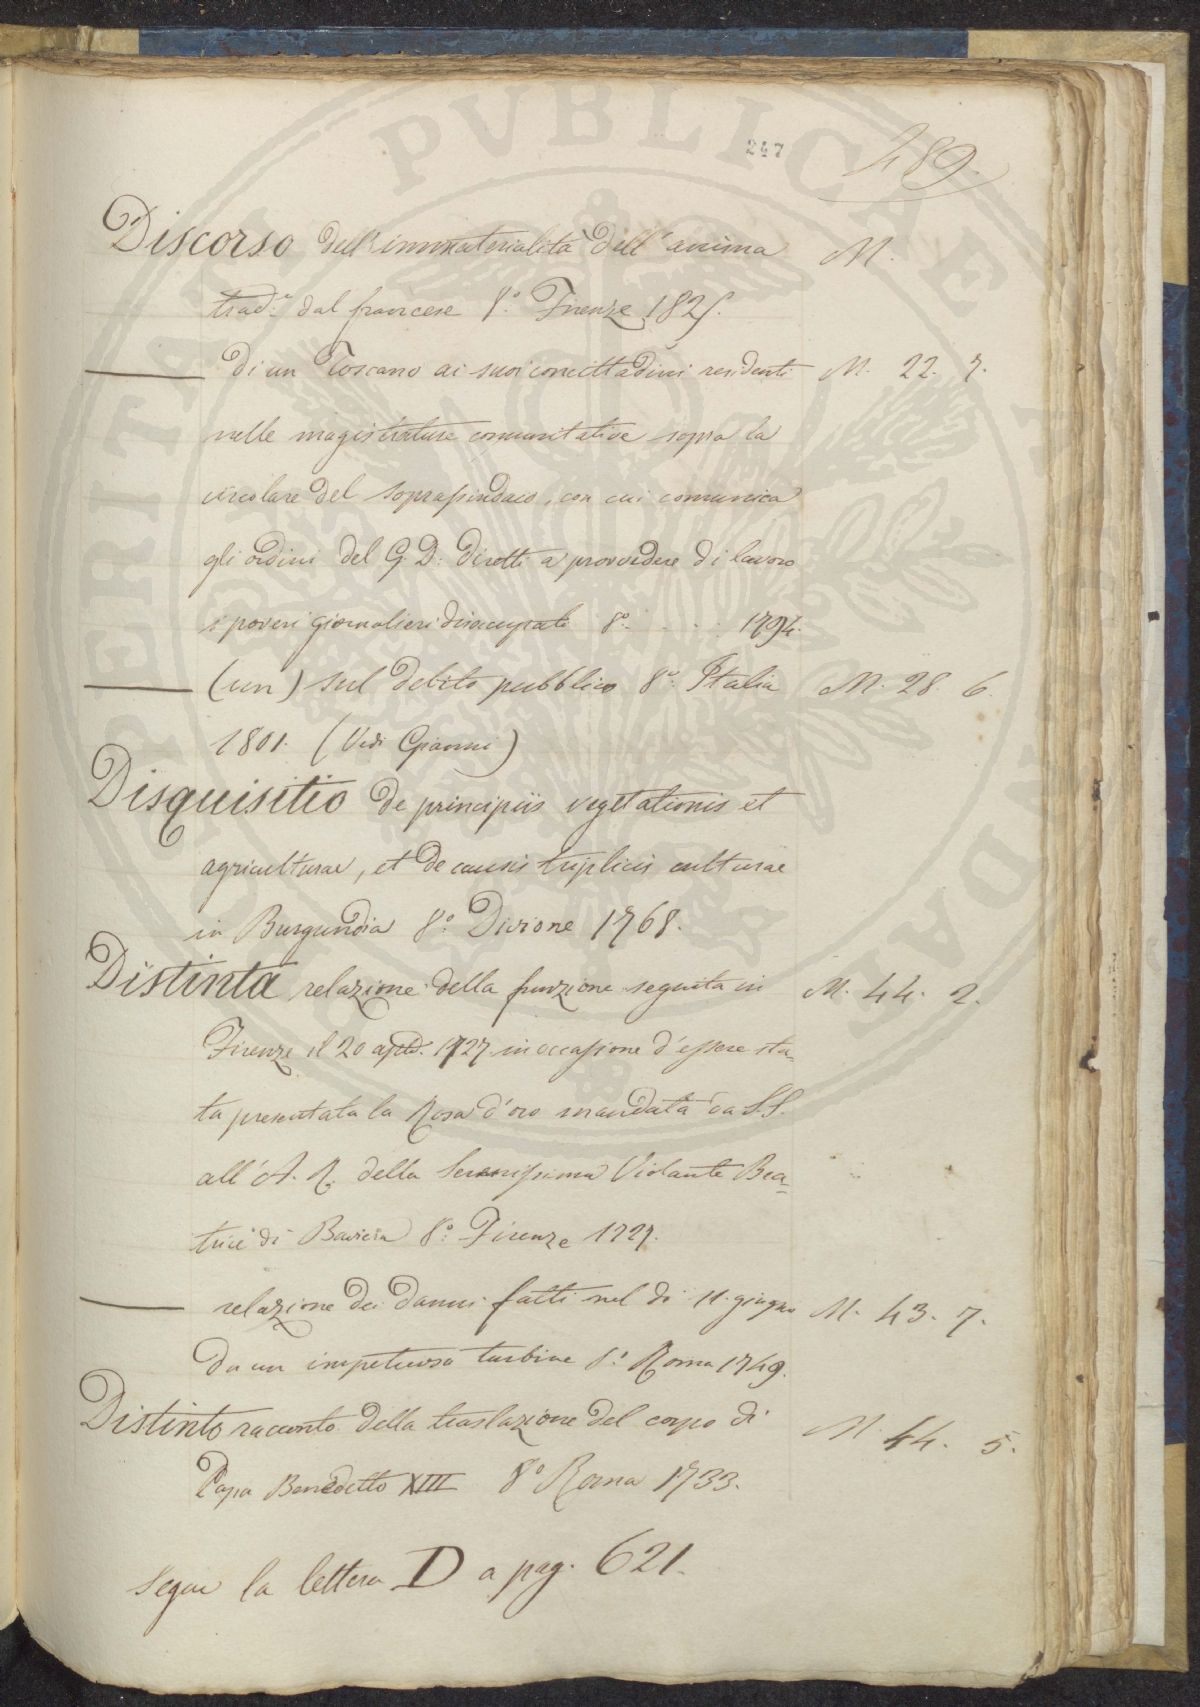 247
489.
Discorso dell'immaterialità dell'anima M.
trad.e dal francese 8.o Firenze 1825.
—— di un Toscano ai suoi concittadini residenti M. 22. 7.
nelle magistrature comunitative sopra la
circolare del soprassindaco, con cui comunica
gli ordini del G. D: diretti a provvedere di lavoro
i poveri giornalieri disoccupati 8.o . . . . 1794.
—— (un) sul debito pubblico 8.o Italia M. 28. 6.
1801. (Vedi Gianni)
Disquisitio de principiis vegetationis et
agriculturae, et de causis triplicis culturae
in Burgundia 8.o Divione 1768.
Distinta relazione della funzione seguita in M. 44. 2.
Firenze il 20 aple. 1727. in occasione d'essere sta-
ta presentata la Rosa d'oro mandata da S.S.
all'A. R. della Serenissima Violante Bea-
trice di Baviera 8.o Firenze 1727.
—— relazione dei danni fatti nel dì 11. giugno M. 43. 7.
da un impetuoso turbine 8.o Roma 1749.
Distinto racconto della traslazione del corpo di M. 44. 5.
Papa Benedetto XIII 8.o Roma 1733.
Segue la lettera D a pag. 621.